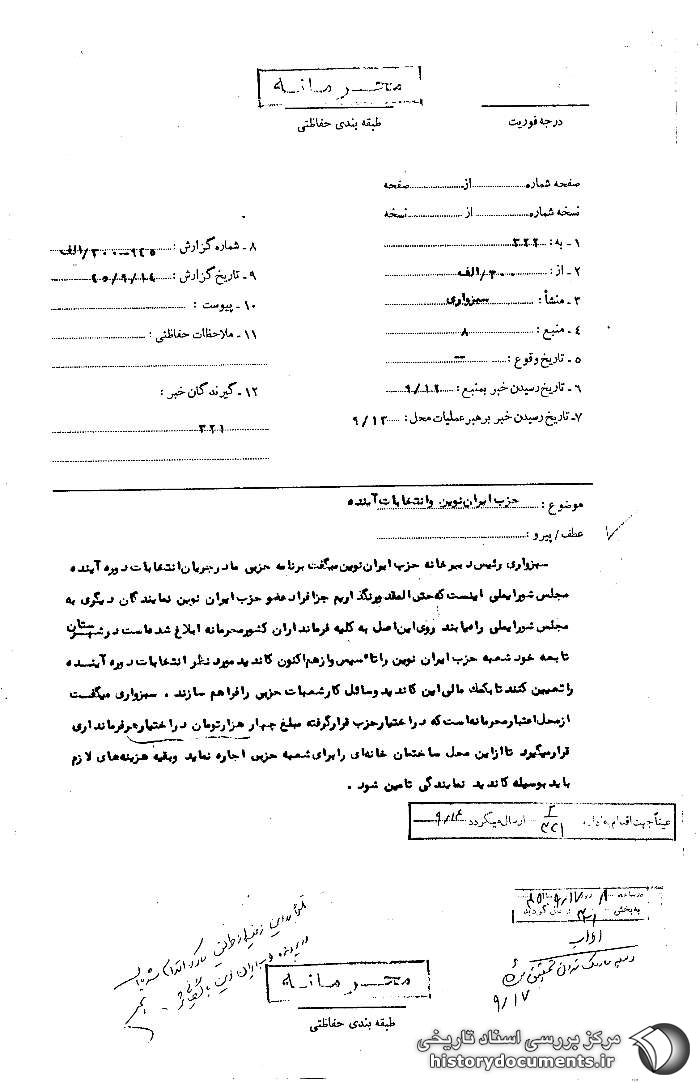 محرمانه
طبقه بندی حفاظتی
درجه فوریت
صفحه شماره .......... از .......... صفحه
نسخه شماره .......... از .......... نسخه
۱ـ به : ۳۲۲
۲ـ از : ۳۰۰/الف
۳ـ منشأ : سبزواری
۴ـ منبع : ۸
۵ـ تاریخ وقوع : ــ
۶ـ تاریخ رسیدن خبر بمنبع : ۹/۱۲
۷ـ تاریخ رسیدن خبر برهبر عملیات محل : ۹/۱۳
۸ـ شماره گزارش : ۳۰۰۰۹۴۵/الف
۹ـ تاریخ گزارش : ۴۵/۹/۱۴
۱۰ـ پیوست :
۱۱ـ ملاحظات حفاظتی :
۱۲ـ گیرندگان خبر :
۳۲۱
موضوع : حزب ایران نوین وانتخابات آینده
عطف/پیرو :
سبزواری رئیس دبیرخانه حزب ایران نوین میگفت برنامه حزبی ما در جریان انتخابات دوره آینده
مجلس شورایملی اینست که حتی المقدور نگذاریم جز افراد عضو حزب ایران نوین نمایندگان دیگری به
مجلس شورایملی راه یابند روی این اصل به کلیه فرمانداران کشور محرمانه ابلاغ شده است در شهرستان
تابعه خود شعبه حزب ایران نوین را تاسیس و از هم اکنون کاندید مورد نظر انتخابات دوره آینده
را تعیین کنند تا بکمک مالی این کاندید وسائل کار شعبات حزبی را فراهم سازند . سبزواری میگفت
از محل اعتبار محرمانه است که در اختیار حزب قرار گرفته مبلغ چهار هزار تومان در اختیار هر فرمانداری
قرار میگیرد تا از این محل ساختمان خانه‌ای را برای شعبه حزبی اجاره نماید وبقیه هزینه‌های لازم
باید بوسیله کاندید نمایندگی تامین شود .
عیناً جهت اقدام به اداره ۳۲۱ ارسال میگردد ۹/۱۴
به بخش ۳۲۱
۹/۱۷
محرمانه
طبقه بندی حفاظتی
مرکز بررسی اسناد تاریخی
historydocuments.ir